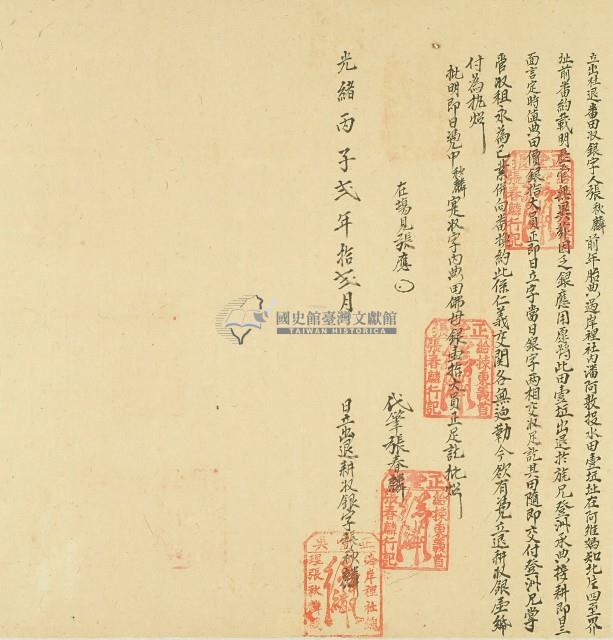 立出社退番田收銀字人張秋麟前年胎典過岸裡社內潘阿敦投水田壹坵址在阿維媽知北片四至界
址前番約載明長
乏銀應用愿將此田壹坵出退於族兄登洲承典接耕即日三
面言定時值典田價銀拾大員正即日立字當日銀字兩相交收足訖其田隨即交付登洲兄掌
管收租永為己業
此係仁義交關各無迫勒今欲有憑立退耕收銀壹紙
付為執炤
批明即日憑中秋麟寔收字內典田佛母銀壹拾大員正足訖批炤
在場見張應
光緒丙子弍年拾弍月
代筆張春麟
日立出退耕收銀字張秋麟
國史館臺灣文獻館
TAIWAN HISTORICA
正
給棟東義首
張春麟行記